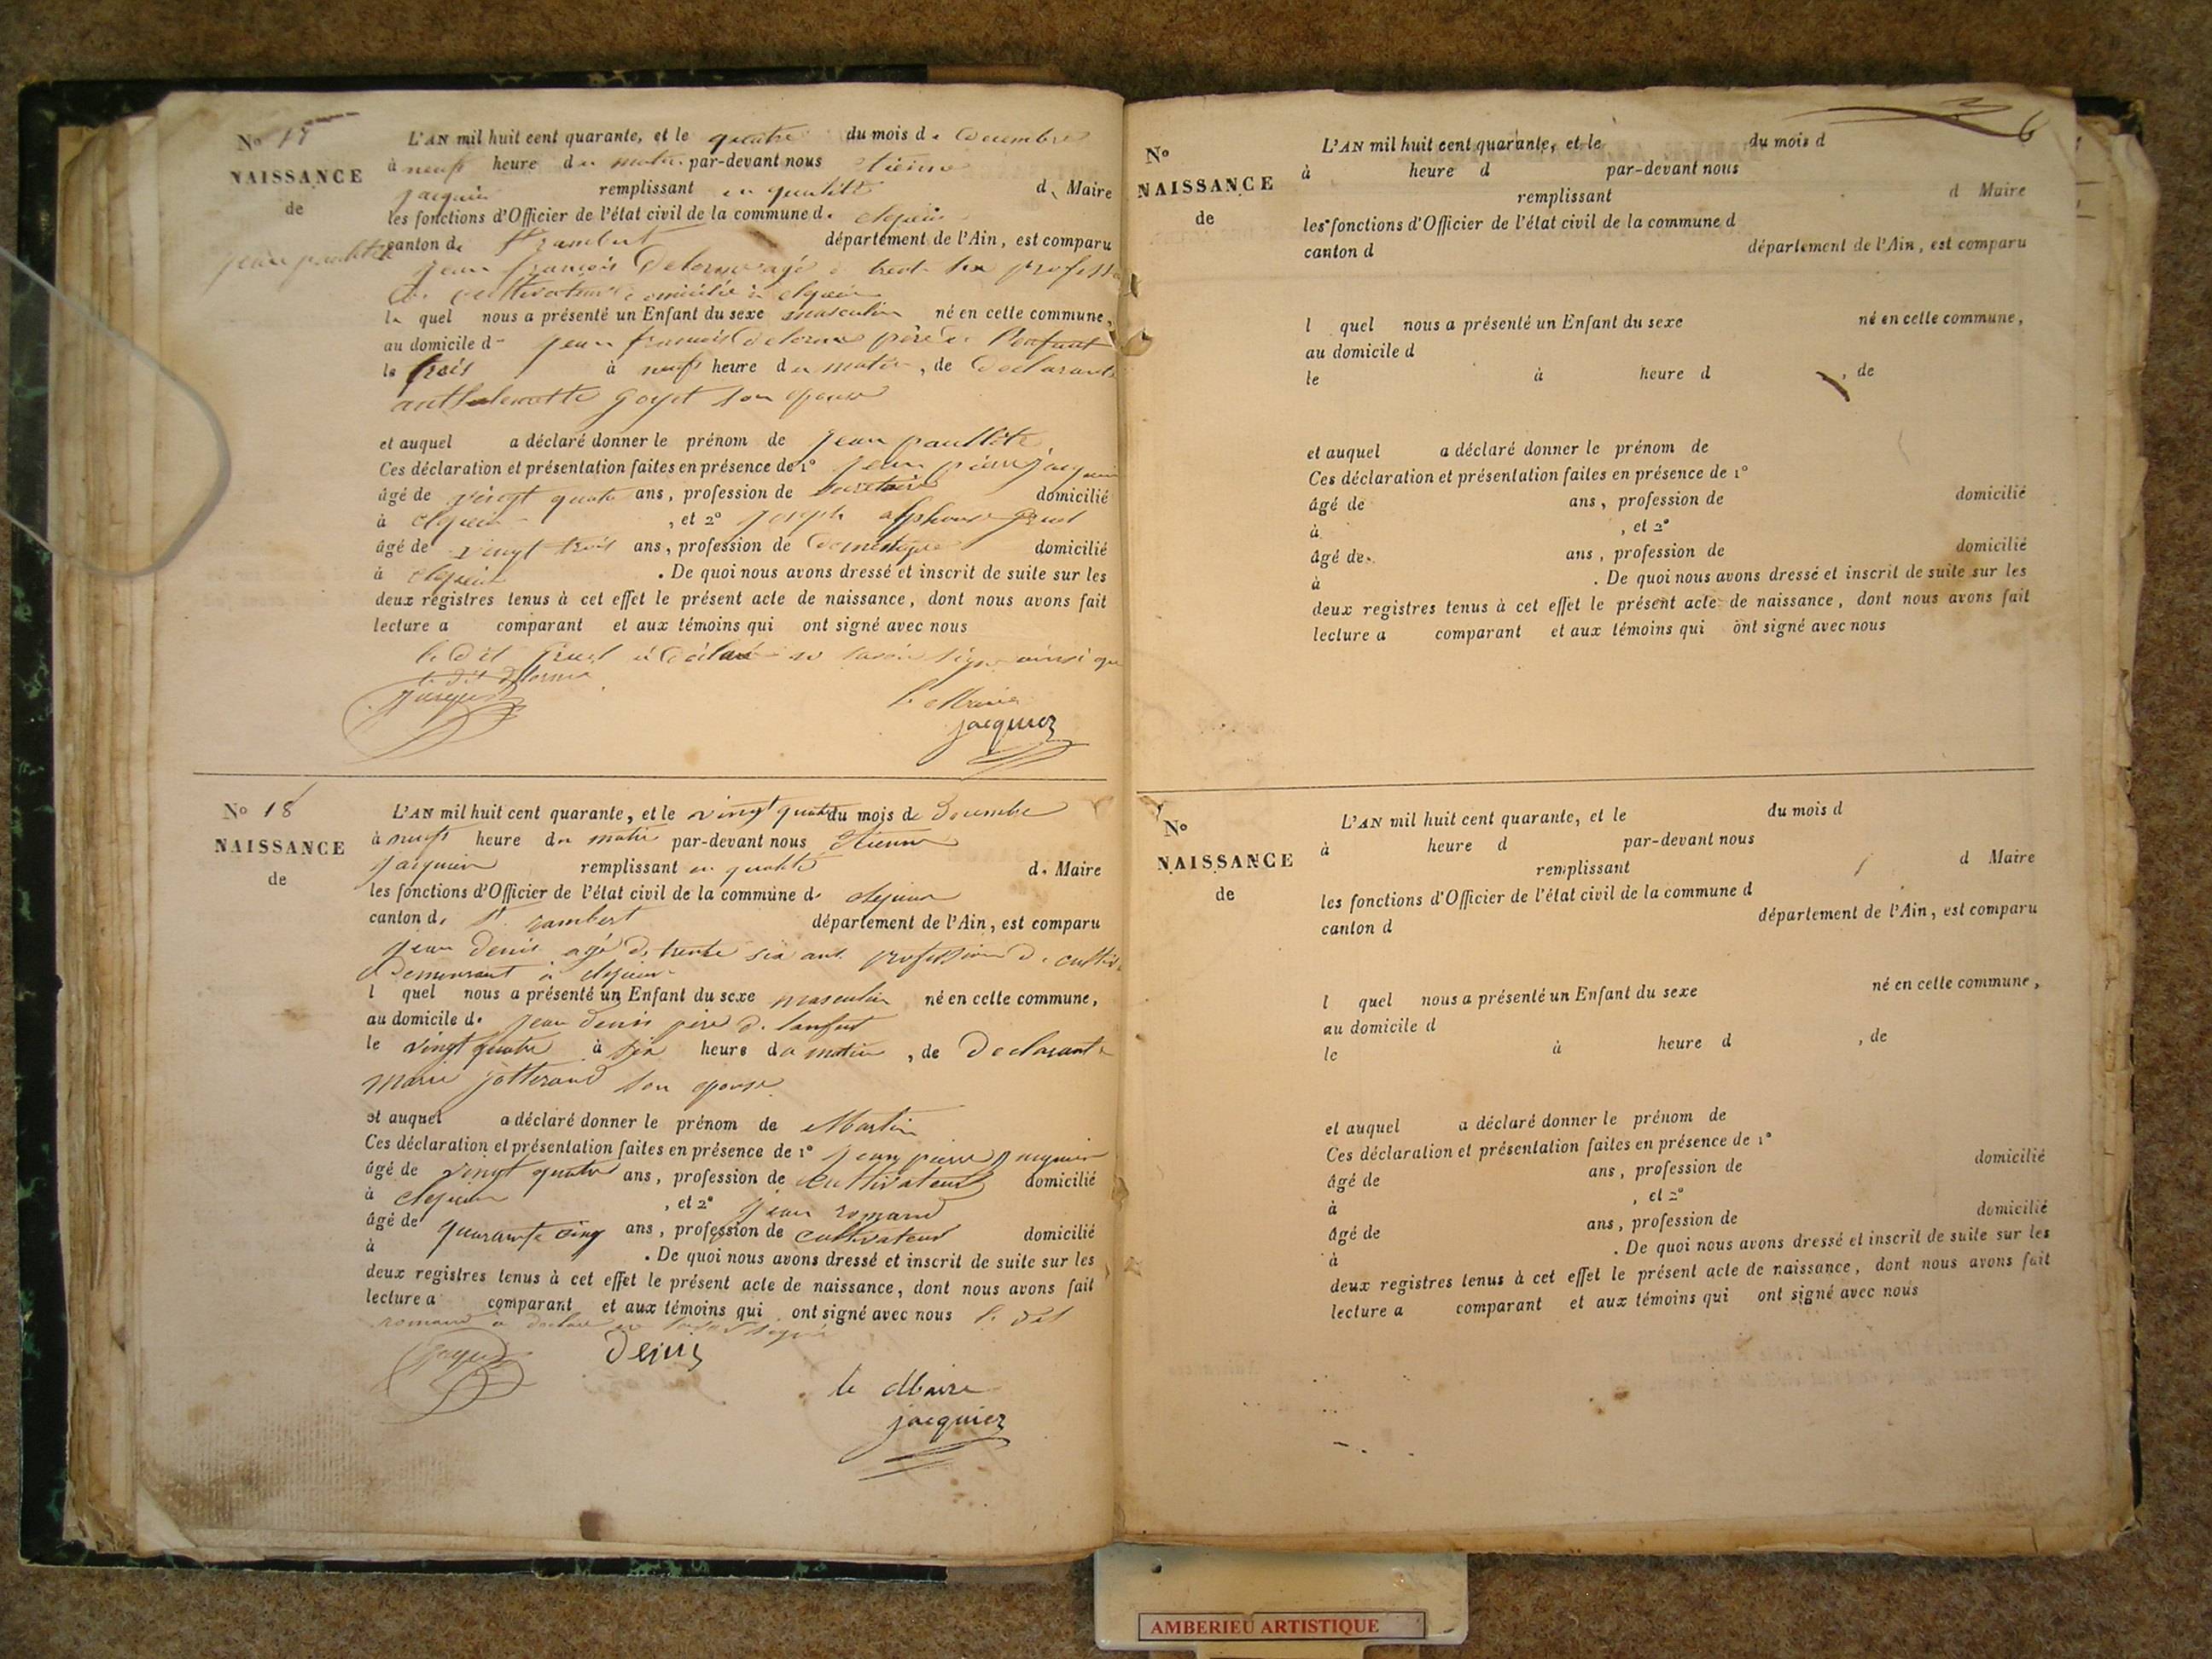 No 17
NAISSANCE
de
jean paullite
L'AN mil huit cent quarante, et le quatre du mois de decembre
à neuf heure du matin par-devant nous etienne
jacquier remplissant en qualité de Maire
les fonctions d'Officier de l'état civil de la commune de
canton de St rambert département de l'Ain, est comparu
jean françois Delorme agé de trente six profession
de cultivateur domicilié à
le quel nous a présenté un Enfant du sexe masculin né en cette commune,
au domicile de jean francois delorme père de l'enfant
le trois à neuf heure du matin, de declarant
goyet son epouse
et auquel a déclaré donner le prénom de jean paullite
Ces déclaration et présentation faites en présence de 1° jean pierre jacquier
âgé de vingt quatre ans, profession de secretaire domicilié
à , et 2° joseph alphonse
âgé de vingt trois ans, profession de domestique domicilié
à . De quoi nous avons dressé et inscrit de suite sur les
deux registres tenus à cet effet le présent acte de naissance, dont nous avons fait
lecture a comparant et aux témoins qui ont signé avec nous
le dit à déclaré ne savoir signer ainsi que
le dit delorme
jacquier
le Maire
jacquier
No 18
NAISSANCE
de
L'AN mil huit cent quarante, et le vingt quatre du mois de decembre
à neuf heure du matin par-devant nous Etienne
jacquier remplissant en qualité de Maire
les fonctions d'Officier de l'état civil de la commune de
canton de St rambert département de l'Ain, est comparu
jean denis agé de trente six ans profession de cultiv
demeurant à
l quel nous a présenté un Enfant du sexe masculin né en cette commune,
au domicile de jean denis père de lenfant
le vingt quatre à six heure du matin, de Declarant
marie jotterand son epouse
et auquel a déclaré donner le prénom de Martin
Ces déclaration et présentation faites en présence de 1° jean pierre jacquier
âgé de vingt quatre ans, profession de cultivateur domicilié
à , et 2° jean romand
âgé de quarante cinq ans, profession de cultivateur domicilié
à . De quoi nous avons dressé et inscrit de suite sur les
deux registres tenus à cet effet le présent acte de naissance, dont nous avons fait
lecture a comparant et aux témoins qui ont signé avec nous le dit
romand a declaré ne
jacquier denis
le Maire
jacquier
6
No
NAISSANCE
de
L'AN mil huit cent quarante, et le du mois d
à heure d par-devant nous
remplissant d Maire
les fonctions d'Officier de l'état civil de la commune d
canton d département de l'Ain, est comparu
l quel nous a présenté un Enfant du sexe né en cette commune,
au domicile d
le à heure d , de
et auquel a déclaré donner le prénom de
Ces déclaration et présentation faites en présence de 1°
âgé de ans, profession de domicilié
à , et 2°
âgé de ans, profession de domicilié
à . De quoi nous avons dressé et inscrit de suite sur les
deux registres tenus à cet effet le présent acte de naissance, dont nous avons fait
lecture a comparant et aux témoins qui ont signé avec nous
No
NAISSANCE
de
L'AN mil huit cent quarante, et le du mois d
à heure d par-devant nous
remplissant d Maire
les fonctions d'Officier de l'état civil de la commune d
canton d département de l'Ain, est comparu
l quel nous a présenté un Enfant du sexe né en cette commune,
au domicile d
le à heure d , de
et auquel a déclaré donner le prénom de
Ces déclaration et présentation faites en présence de 1°
âgé de ans, profession de domicilié
à , et 2°
âgé de ans, profession de domicilié
à . De quoi nous avons dressé et inscrit de suite sur les
deux registres tenus à cet effet le présent acte de naissance, dont nous avons fait
lecture a comparant et aux témoins qui ont signé avec nous
AMBERIEU ARTISTIQUE